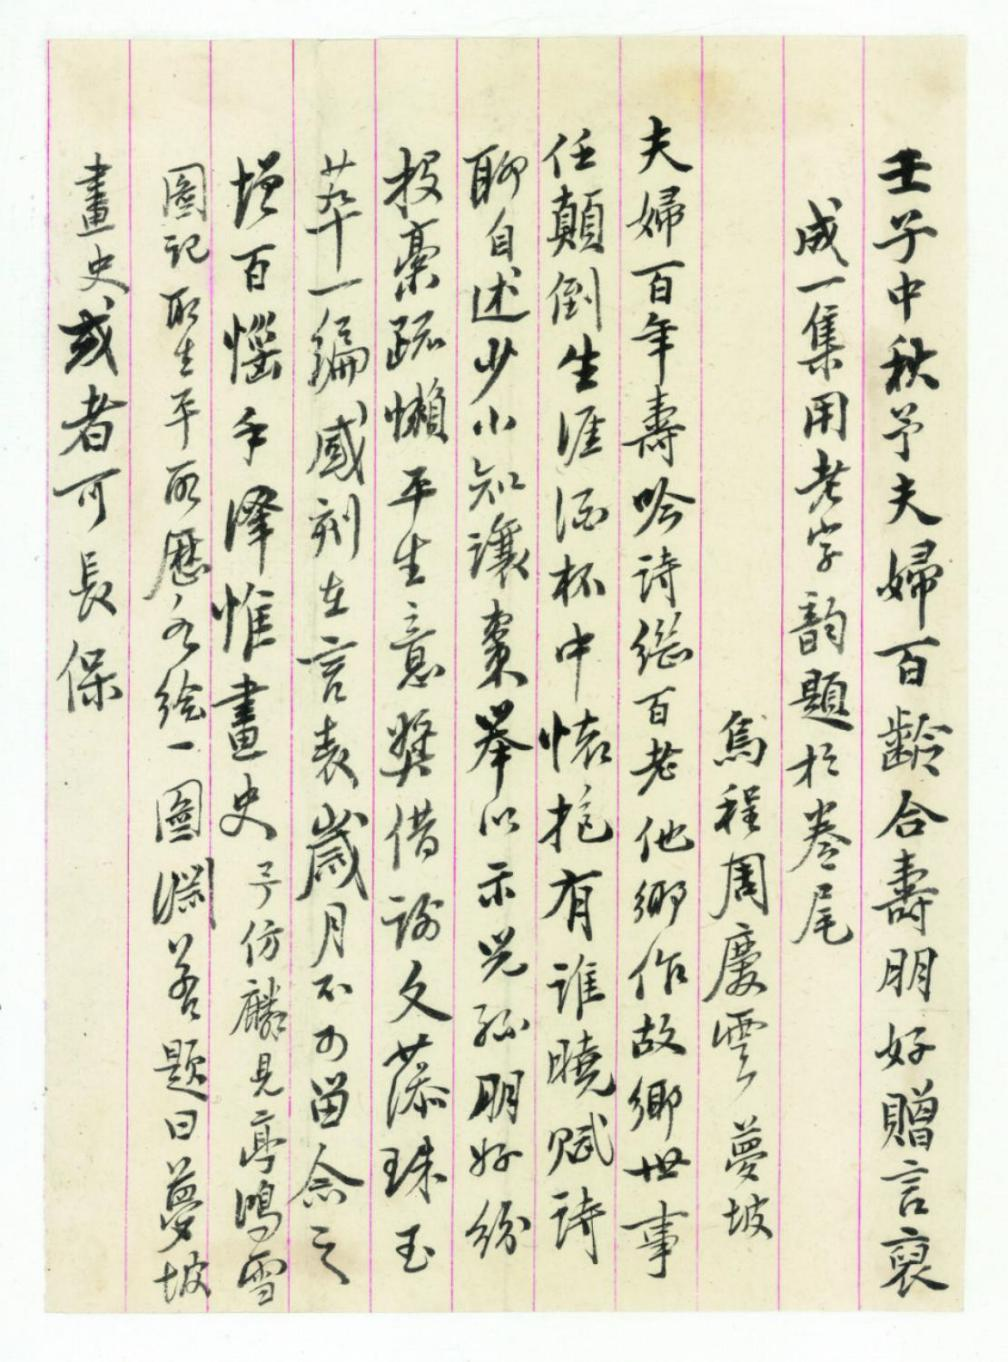 壬子中秋予夫婦百齡合壽朋好贈言裒
成一集用老字韵題於卷尾
烏程周慶雲夢坡
夫婦百年壽吟詩繼百老他鄉作故鄉世事
任顛倒生涯酒杯中懷抱有誰曉賦詩
聊自述少小知讓棗舉以示兒孫朋好紛
投稾疏懶平生意獎借謝文藻珠玉
萃一編感刻在言表歲月不可留念之
增百惱手澤惟畫史予仿麟見亭鴻雪
圖記取生平所歷各繪一圖淵若題曰夢坡
畫史或者可長保